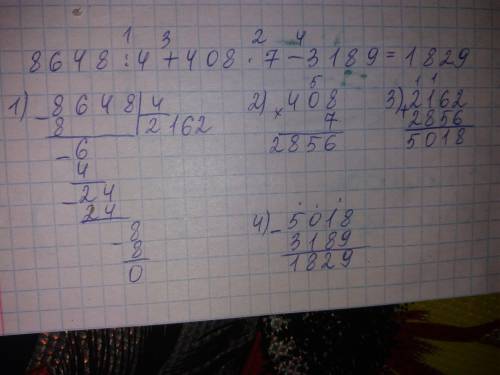 1 3 2 4
8648 : 4 + 408 · 7 − 3189 = 1829
1) 8648 | 4
− 8 2162
− 6
4
− 24
24
− 8
8
0
2) 5
× 408
7
2856
3) 1 1
+ 2162
2856
5018
4) − 5018
3189
1829